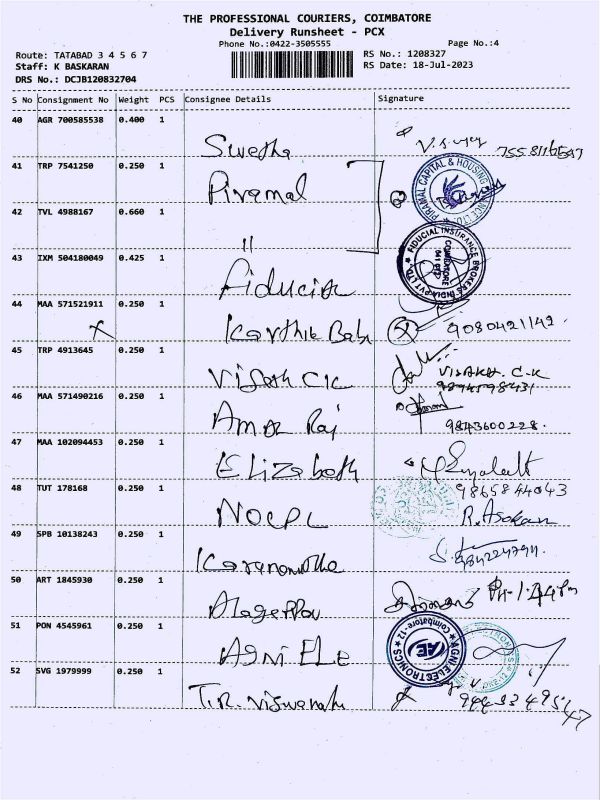 THE PROFESSIONAL COURIERS, COIMBATORE
Delivery Runsheet - PCX
Phone No.:0422-3505555
Page No.:4
Route: TATABAD 3 4 5 6 7
RS No.: 1208327
Staff: K BASKARAN
RS Date: 18-Jul-2023
DRS No.: DCJB120832704
S No Consignment No Weight PCS Consignee Details Signature
40 AGR 700585538 0.400 1
Swetha
41 TRP 7541250 0.250 1
Piramal
PIRAMAL CAPITAL & HOUSING
42 TVL 4988167 0.660 1
"
43 IXM 504180049 0.425 1
Fiducia
FIDUCIAL INSURANCE BROKERS INDIA PVT LTD.
COIMBATORE
44 MAA 571521911 0.250 1
X Karthik Babu 9080421142
45 TRP 4913645 0.250 1
C.K
46 MAA 571490216 0.250 1
Amar Raj 9843600228
47 MAA 102094453 0.250 1
Elizabeth
48 TUT 178168 0.250 1
9865844043
NOCPL R. Asokan
49 SPB 10138243 0.250 1
50 ART 1845930 0.250 1
51 PON 4545961 0.250 1
Agni ELE
AGNI ELECTRONICS
Coimbatore-12
AE
52 SVG 1979999 0.250 1
T.R. Viswanath